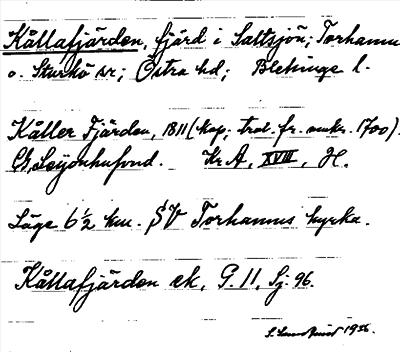 Kållafjärden, fjärd i Saltsjön; Torhamns
o. Sturkö sr; Östra hd; Blekinge l.
Kåller Fjärden, 1811 (kop; trol. fr. omkr. 1700).
Kr. A, XVIII, H.
Läge 6½ km. SV Torhamns kyrka.
Kållafjärden ek, G. 11, Sj. 96.
S. Lundkvist 1956